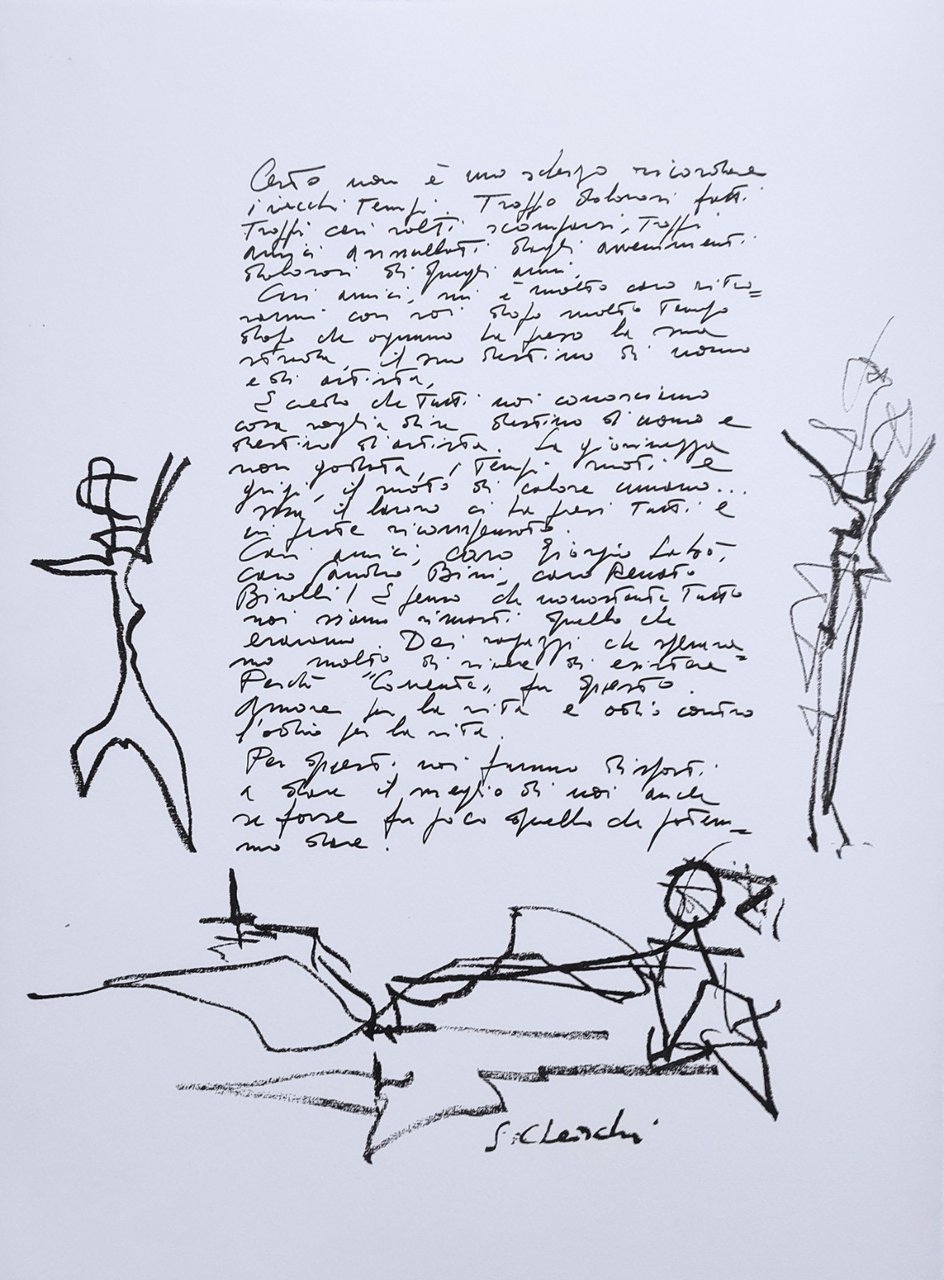 Certo non è uno scherzo ricordare
i vecchi tempi. Troppo dolorosi fatti
Troppi cari volti scomparsi, troppi
amici annullati dagli avvenimenti
dolorosi di quegli anni.
Cari amici, mi è molto caro ritro=
varmi con voi dopo molto tempo
dopo che ognuno ha preso la sua
strada, il suo destino di uomo
e di artista,
E credo che tutti noi conosciamo
cosa voglia dire destino di uomo e
destino d'artista. La giovinezza
non goduta, i tempi vuoti e
grigi, il vuoto di calore umano...
Ma il lavoro ci ha presi tutti e
in parte ricompensato.
Cari amici, caro Giorgio Labò,
caro Sandro Bini, caro Renato
Birolli! E penso che nonostante tutto
noi siamo rimasti quello che
eravamo. Dei ragazzi che sperava=
no molto di vivere di esistere
Perché "Corrente" fu questo.
Amore per la vita e odio contro
l'odio per la vita.
Per questi noi fummo disposti
a dare il meglio di noi anche
se forse fu poco quello che potem=
mo dare.
S. Cherchi